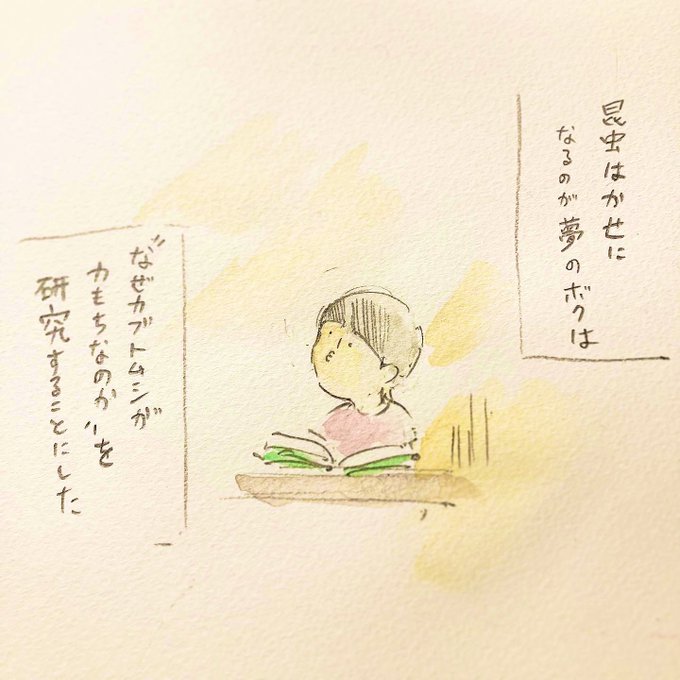 昆虫はかせに
なるのが夢のボクは
"なぜカブトムシが
力もちなのか"を
研究することにした